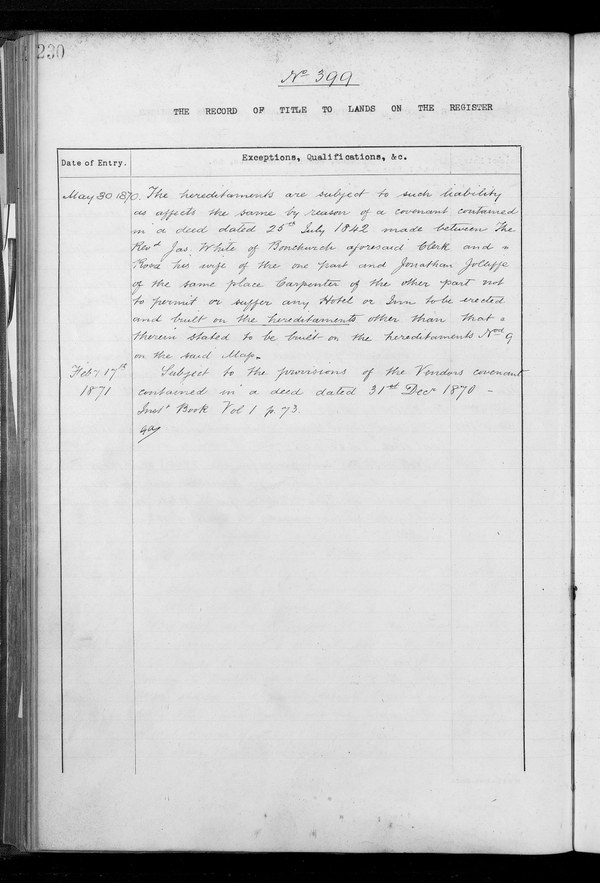 230
No 399
THE RECORD OF TITLE TO LANDS ON THE REGISTER
Date of Entry.
Exceptions, Qualifications, &c.
May 30 1870. The hereditaments are subject to such liability
as affects the same by reason of a covenant contained
in a deed dated 25th July 1842 made between The
Revd Jas. White of Bonchurch aforesaid Clerk and
Rosa his wife of the one part and Jonathan Jolliffe
of the same place Carpenter of the other part not
to permit or suffer any Hotel or Inn to be erected
and built on the hereditaments other than that
therein stated to be built on the hereditaments Nod 9
on the said Map.
Feby 17th
1871
Subject to the provisions of the Vendors covenant
contained in a deed dated 31st Decr 1870 -
Inst Book Vol 1 p. 73.